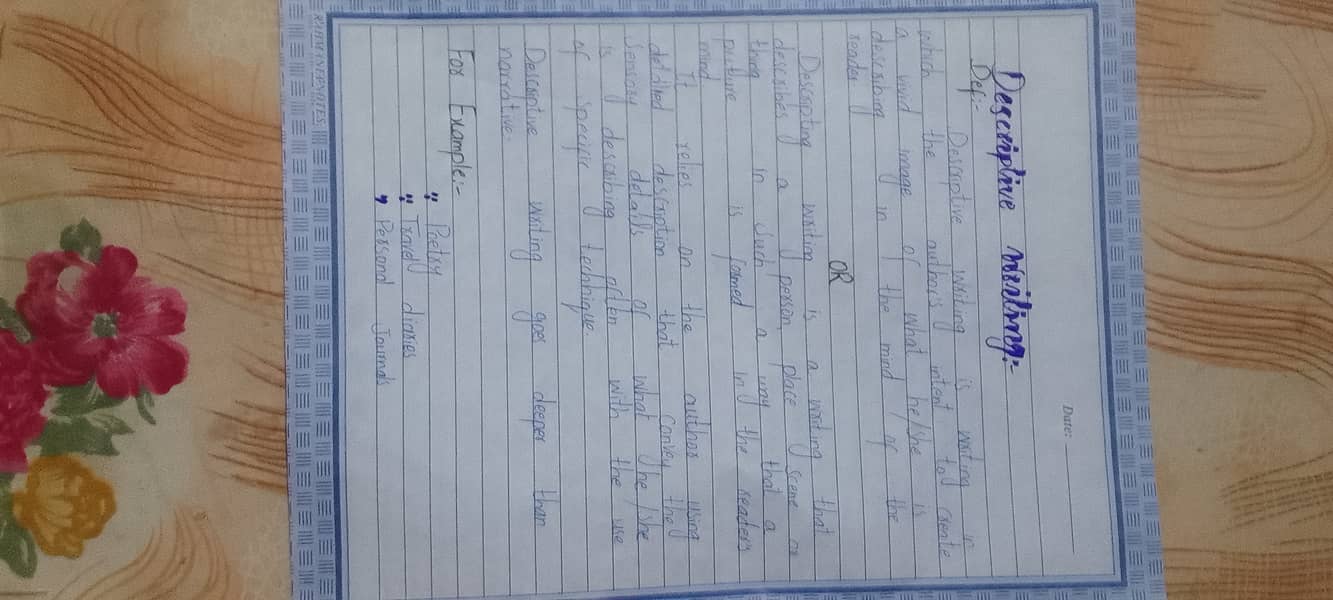 Date:
Descriptive writing:-
Def:-
Descriptive writing is writing in
which the authors intent to create
a vivid image of what he/she is
describing in the mind of the
reader
OR
Descripting writing is a writing that
describes a person, place, scene or
thing in such a way that a
picture is formed in the readers
mind
It relies on the author using
detailed description that convey the
sensory details of what he/she
is describing often with the use
of specific technique.
Descriptive writing goes deeper than
narrative.
For Example:-
" Poetry
" Travel diaries
" Personal Journals